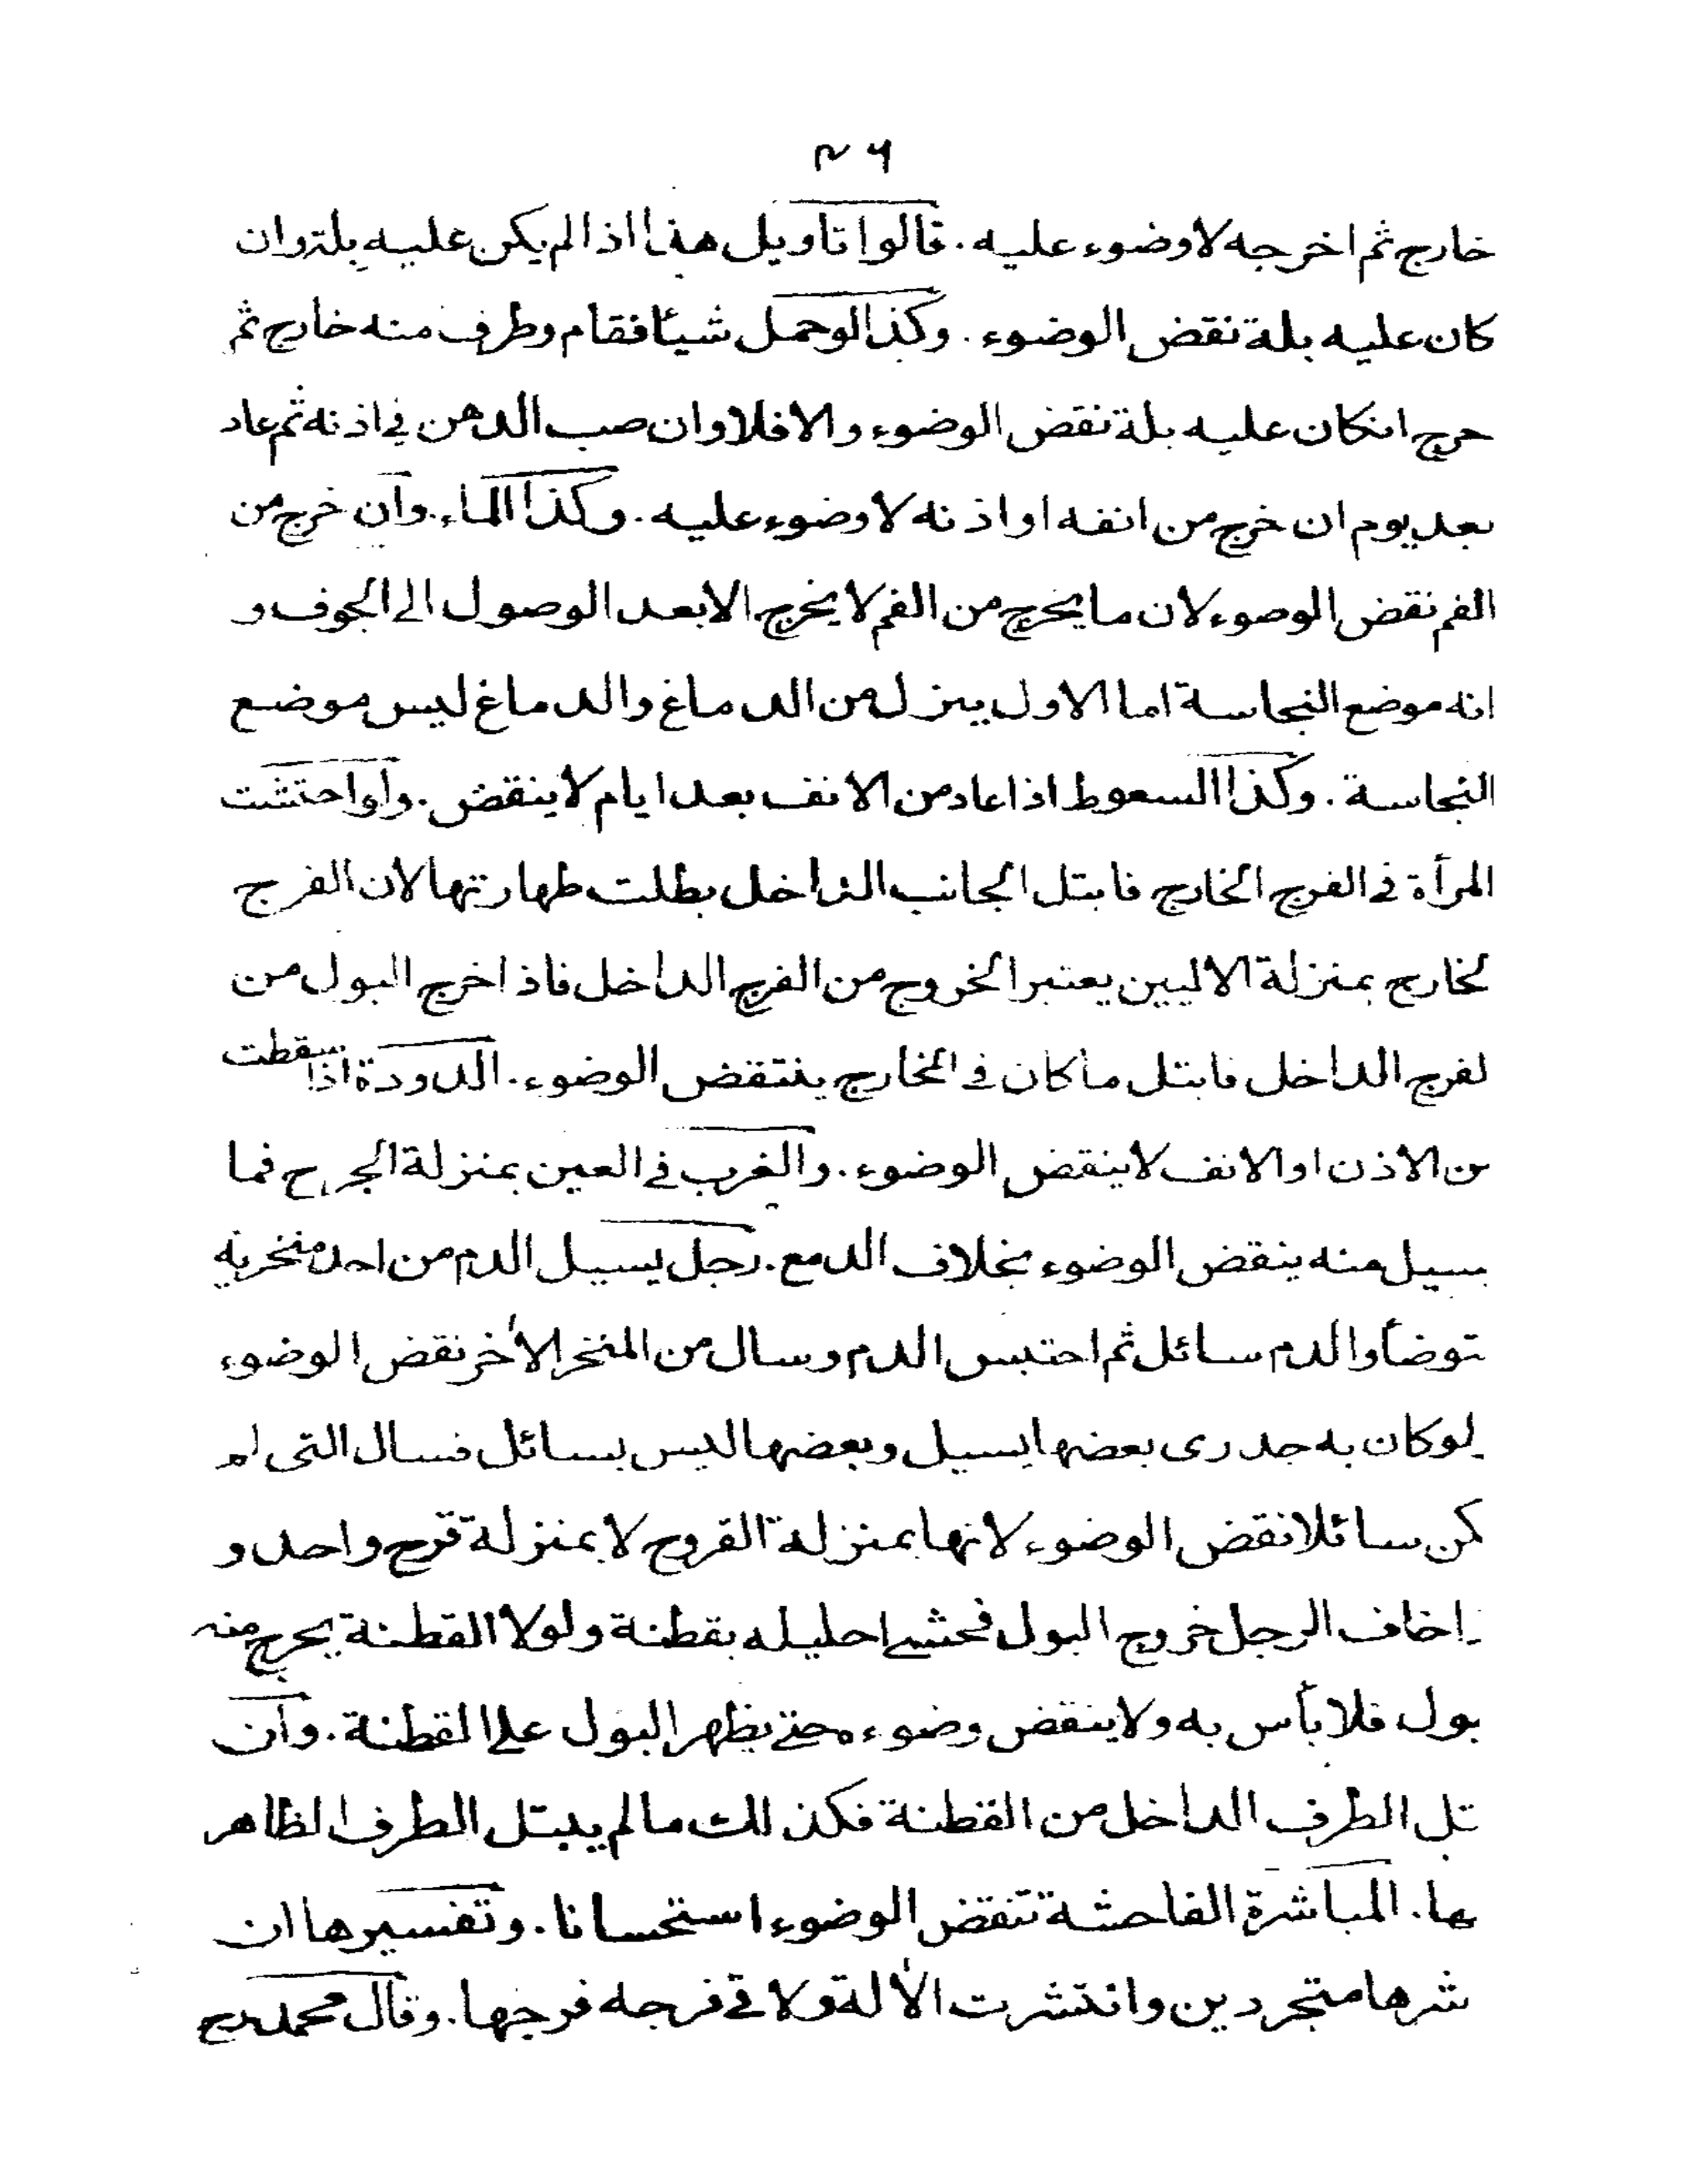 ٢٦
خارج ثم اخرجه لا وضوء عليه . قالوا تاويل هذا اذا لم يكن عليه بلة وان
كان عليه بلة نقض الوضوء . وكذا لو حمل شيئا فقام وطرف منه خارج ثم
حرج انكان عليه بلة نقض الوضوء والا فلا وان صب الدهن في اذنه ثم عاد
بعد يوم ان خرج من انفه او اذنه لا وضوء عليه . وكذا الماء . وان خرج من
الفم نقض الوصوء لان ما يخرج من الفم لا يخرج الا بعد الوصول الى الجوف و
انه موضع النجاسة اما الاول ينزل من الدماغ والدماغ ليس موضع
النجاسة . وكذا السعوط اذا عاد من الانف بعد ايام لا ينقض . ولو احتشت
المرأة في الفرج الخارج فابتل الجانب الداخل بطلت طهارتها لان الفرج
لخارج بمنزلة الاليين يعتبر الخروج من الفرج الداخل فاذا خرج البول من
لفرج الداخل فابتل ما كان في الخارج ينتقض الوضوء . الدودة اذا سقطت
من الاذن او الانف لا ينقض الوضوء . والغرب في العين بمنزلة الجرح فما
سيل منه ينقض الوضوء بخلاف الدمع . رجل يسيل الدم من احد منخريه
توضأ والدم سائل ثم احتبس الدم وسال من المنخر الأخر نقض الوضوء
لو كان به جدرى بعضها يسيل وبعضها ليس بسائل فسال التى لم
كن سائلا نقض الوضوء لانها بمنزلة القروح لا بمنزلة قرح واحد و
اخاف الرجل خروج البول فحشى احليله بقطنة ولولا القطنة يحرج منه
بول فلا بأس به ولا ينقض وضوءه حتى يظهر البول على القطنة . وان
تل الطرف الداخل من القطنة فكذلك ما لم يبتل الطرف الظاهر
بها . المباشرة الفاحشة تنقض الوضوء استحسانا . وتفسيرها ان
شرها متجردين وانتشرت الألة ولاقى فرجه فرجها . وقال محمد رح